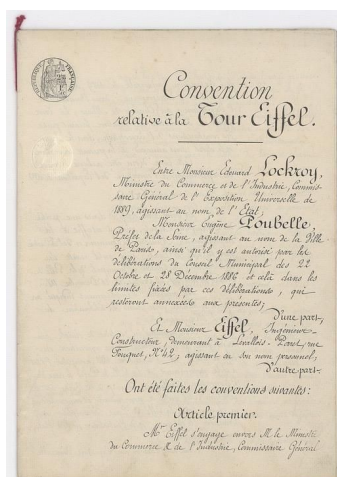 Convention
relative à la Tour Eiffel.
Entre Monsieur Edouard Lockroy,
Ministre du Commerce et de l'Industrie, Commis-
saire Général de l'Exposition Universelle de
1889, agissant au nom de l'Etat,
Monsieur Eugène Poubelle,
Préfet de la Seine, agissant au nom de la Ville
de Paris, ainsi qu'il y est autorisé par les
délibérations du Conseil Municipal des 22
Octobre et 28 Décembre 1886 et cela dans les
limites fixées par ces délibérations, qui
resteront annexées aux présentes;
D'une part,
Et Monsieur Eiffel, Ingénieur-
Constructeur, demeurant à Levallois-Perret, rue
Fouquet, N° 42; agissant en son nom personnel,
D'autre part,
Ont été faites les conventions suivantes:
Article premier.
Mr Eiffel s'engage envers M. le Ministre
du Commerce & de l'Industrie, Commissaire Général